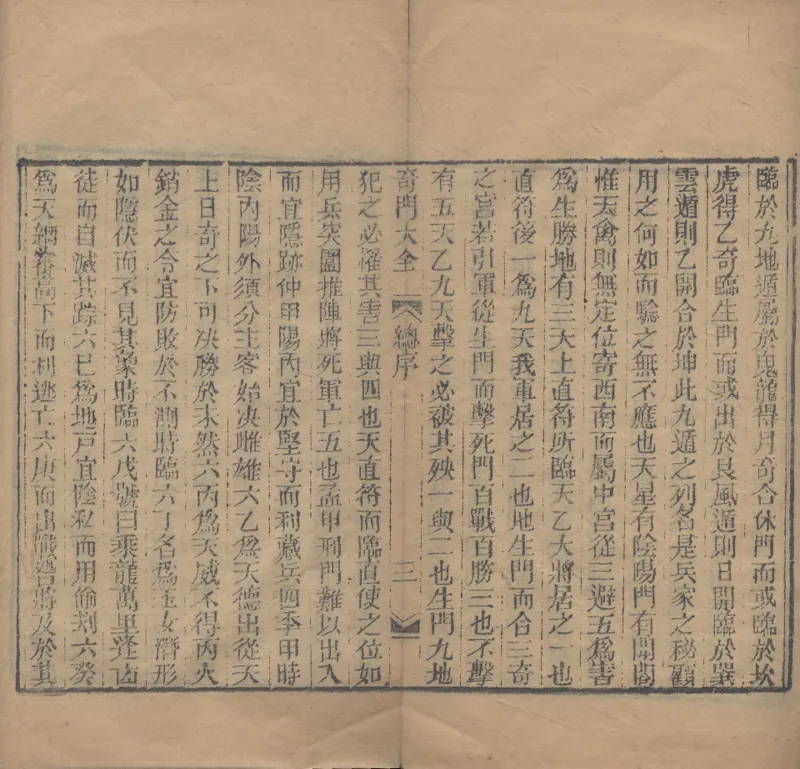 臨於九地遁屬於鬼龍得月奇合休門而或臨於坎
虎得乙奇臨生門而或出於艮風遁則日開臨於巽
雲遁則乙開合於坤此九遁之列名是兵家之秘顧
用之何如而驗之無不應也天星有陰陽門有開闔
惟天禽則無定位寄西南而屬中宮從三避五爲害
爲生勝地有三天上直符所臨天乙大將居之一也
直符後一爲九天我軍居之二也地生門而合三奇
之宮若引軍從生門而擊死門百戰百勝三也不擊
有五天乙九天擊之必被其殃一與二也生門九地
奇門大全 總序 三
犯之必罹其害三與四也天直符而臨直使之位如
用兵突圍推陣將死軍亡五也孟甲刑門難以出入
而宜隱跡仲甲陽內宜於堅守而利藏兵四季甲時
陰內陽外須分主客始决雌雄六乙爲天德出從天
上日奇之下可决勝於未然六丙爲天威不得丙火
銷金之令宜防敗於不測時臨六丁名爲玉女潛形
如隱伏而不見其象時臨六戊號曰乘龍萬里逢凶
徒而自滅其踪六巳爲地戸宜陰私而用偷刦六癸
爲天網看高下而利逃亡六庚而出戰營將及於其